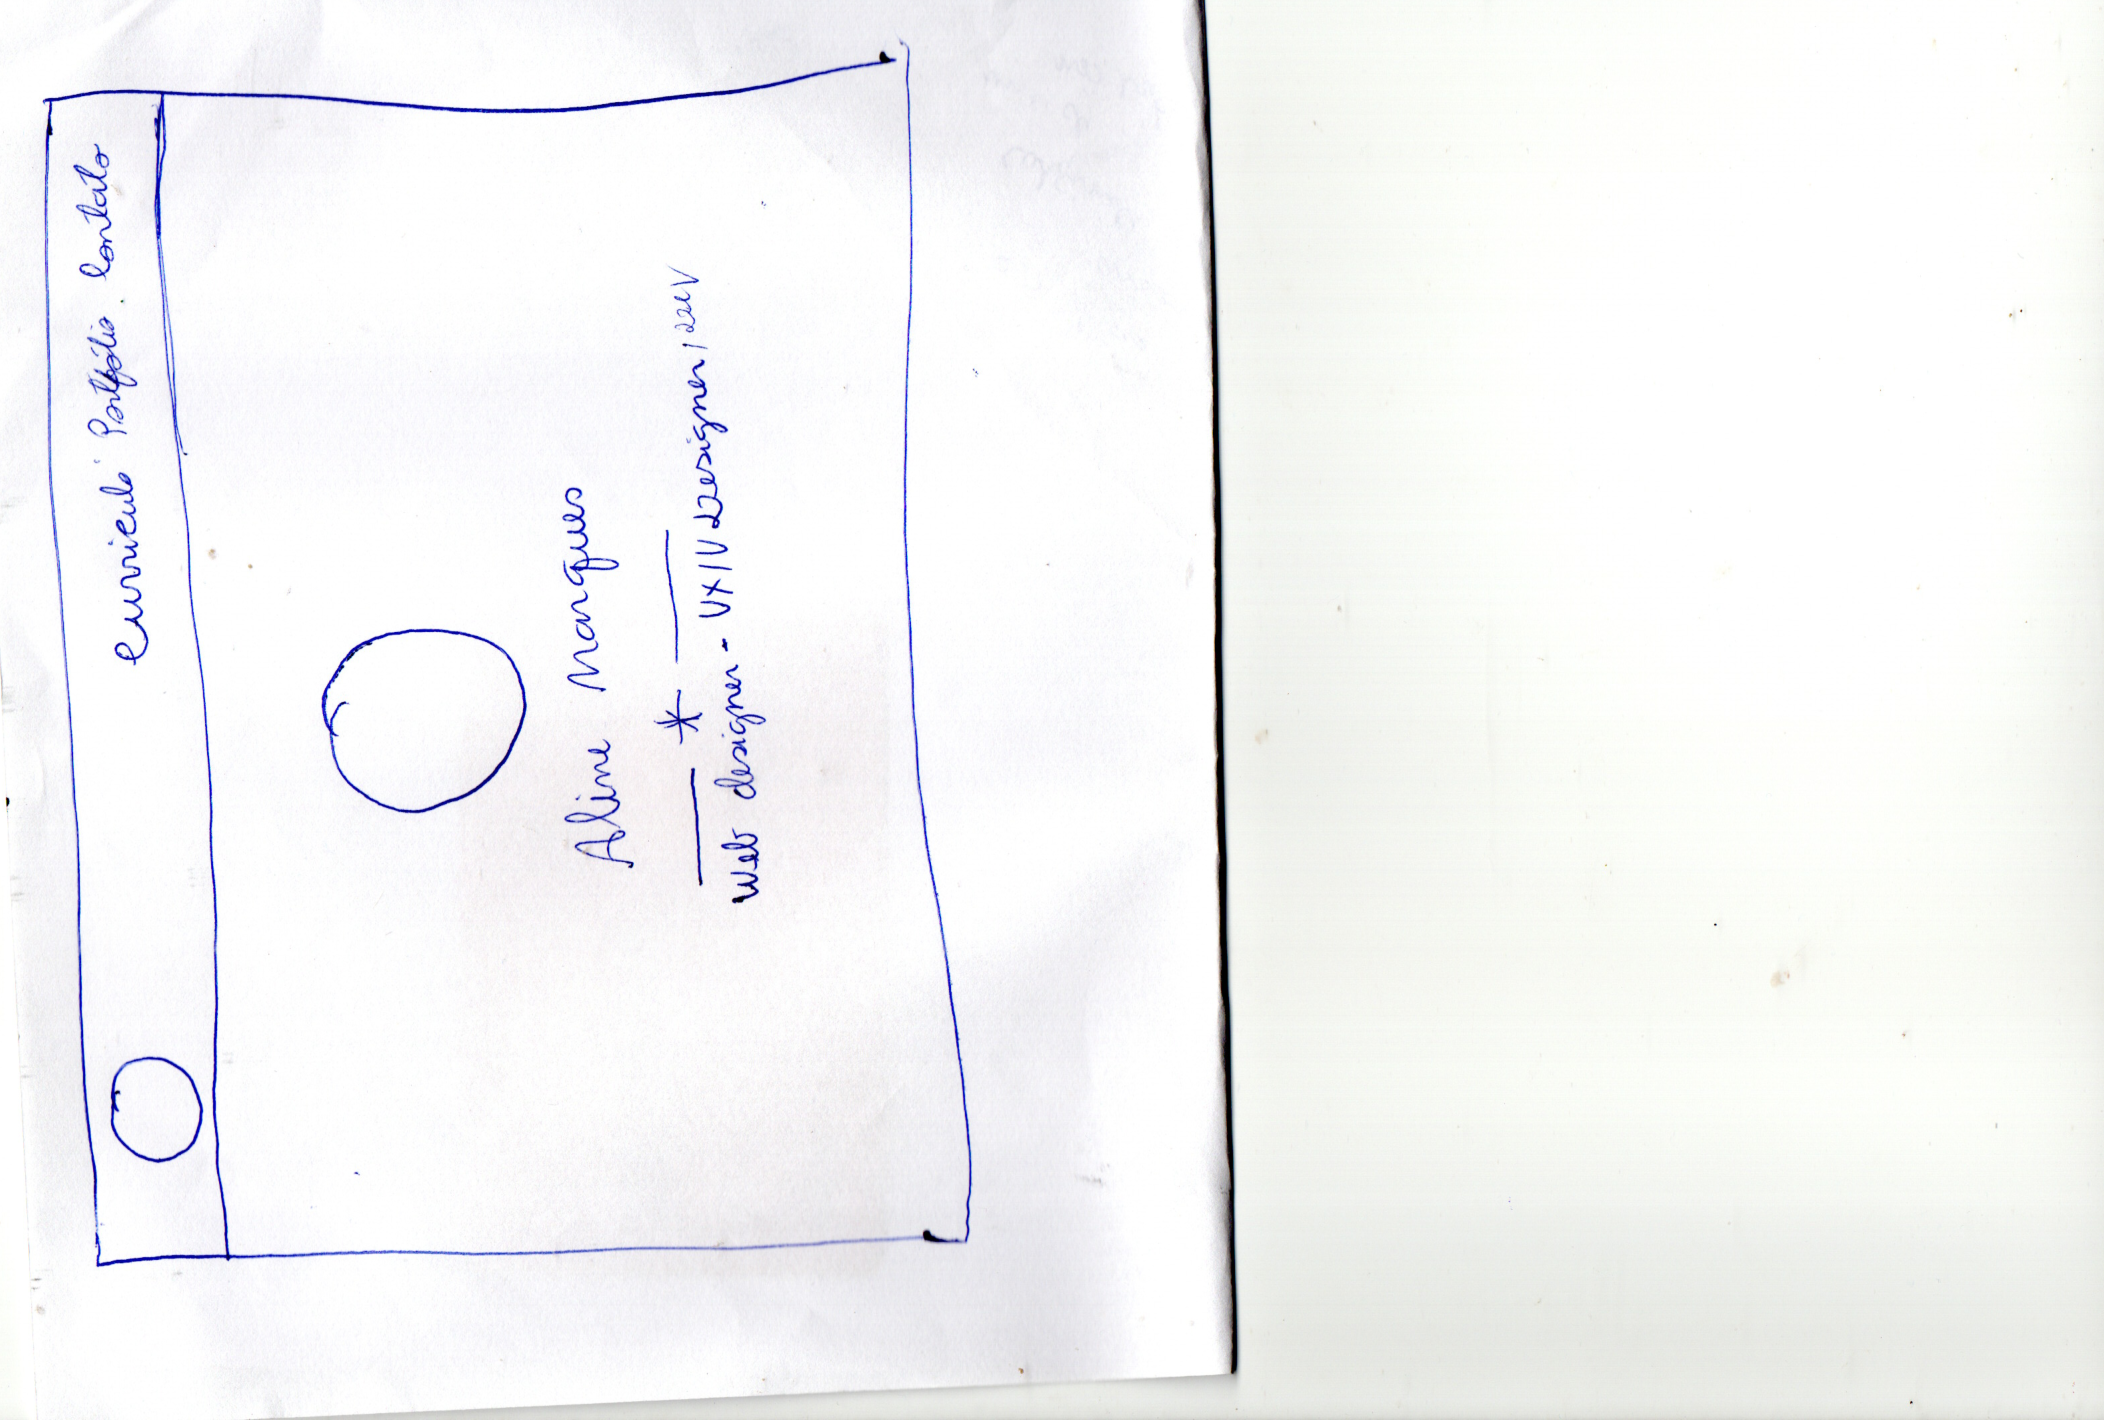 Curriculo Portfólio Contato
Aline Marques
*
Web designer - UX/U Designer/